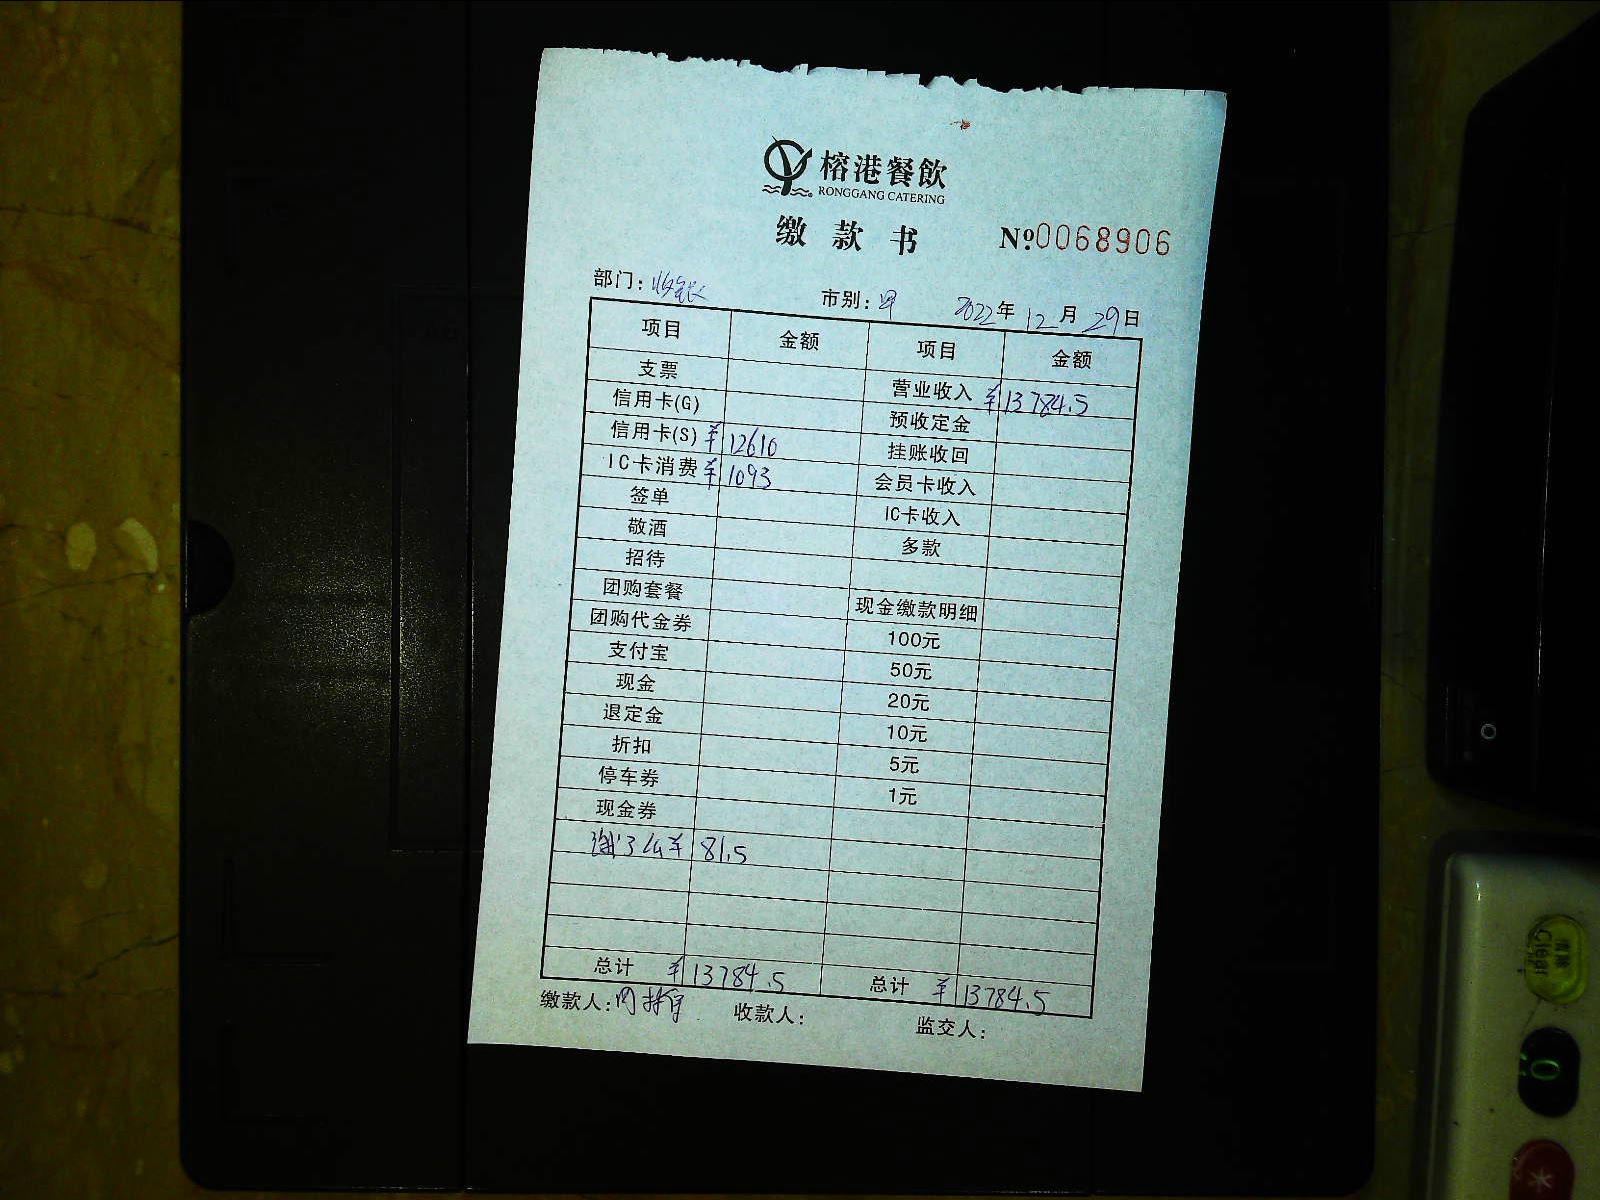 榕港餐飲
RONGGANG CATERING
缴款书 №0068906
部门：收银 市别：早 2022年12月29日
项目 金额 项目 金额
支票 营业收入 ¥13784.5
信用卡(G) 预收定金
信用卡(S) ¥12610 挂账收回
IC卡消费 ¥1093 会员卡收入
签单 IC卡收入
敬酒 多款
招待
团购套餐 现金缴款明细
团购代金券 100元
支付宝 50元
现金 20元
退定金 10元
折扣 5元
停车券 1元
现金券
¥81.5
总计 ¥13784.5 总计 ¥13784.5
缴款人： 收款人： 监交人：
Clear